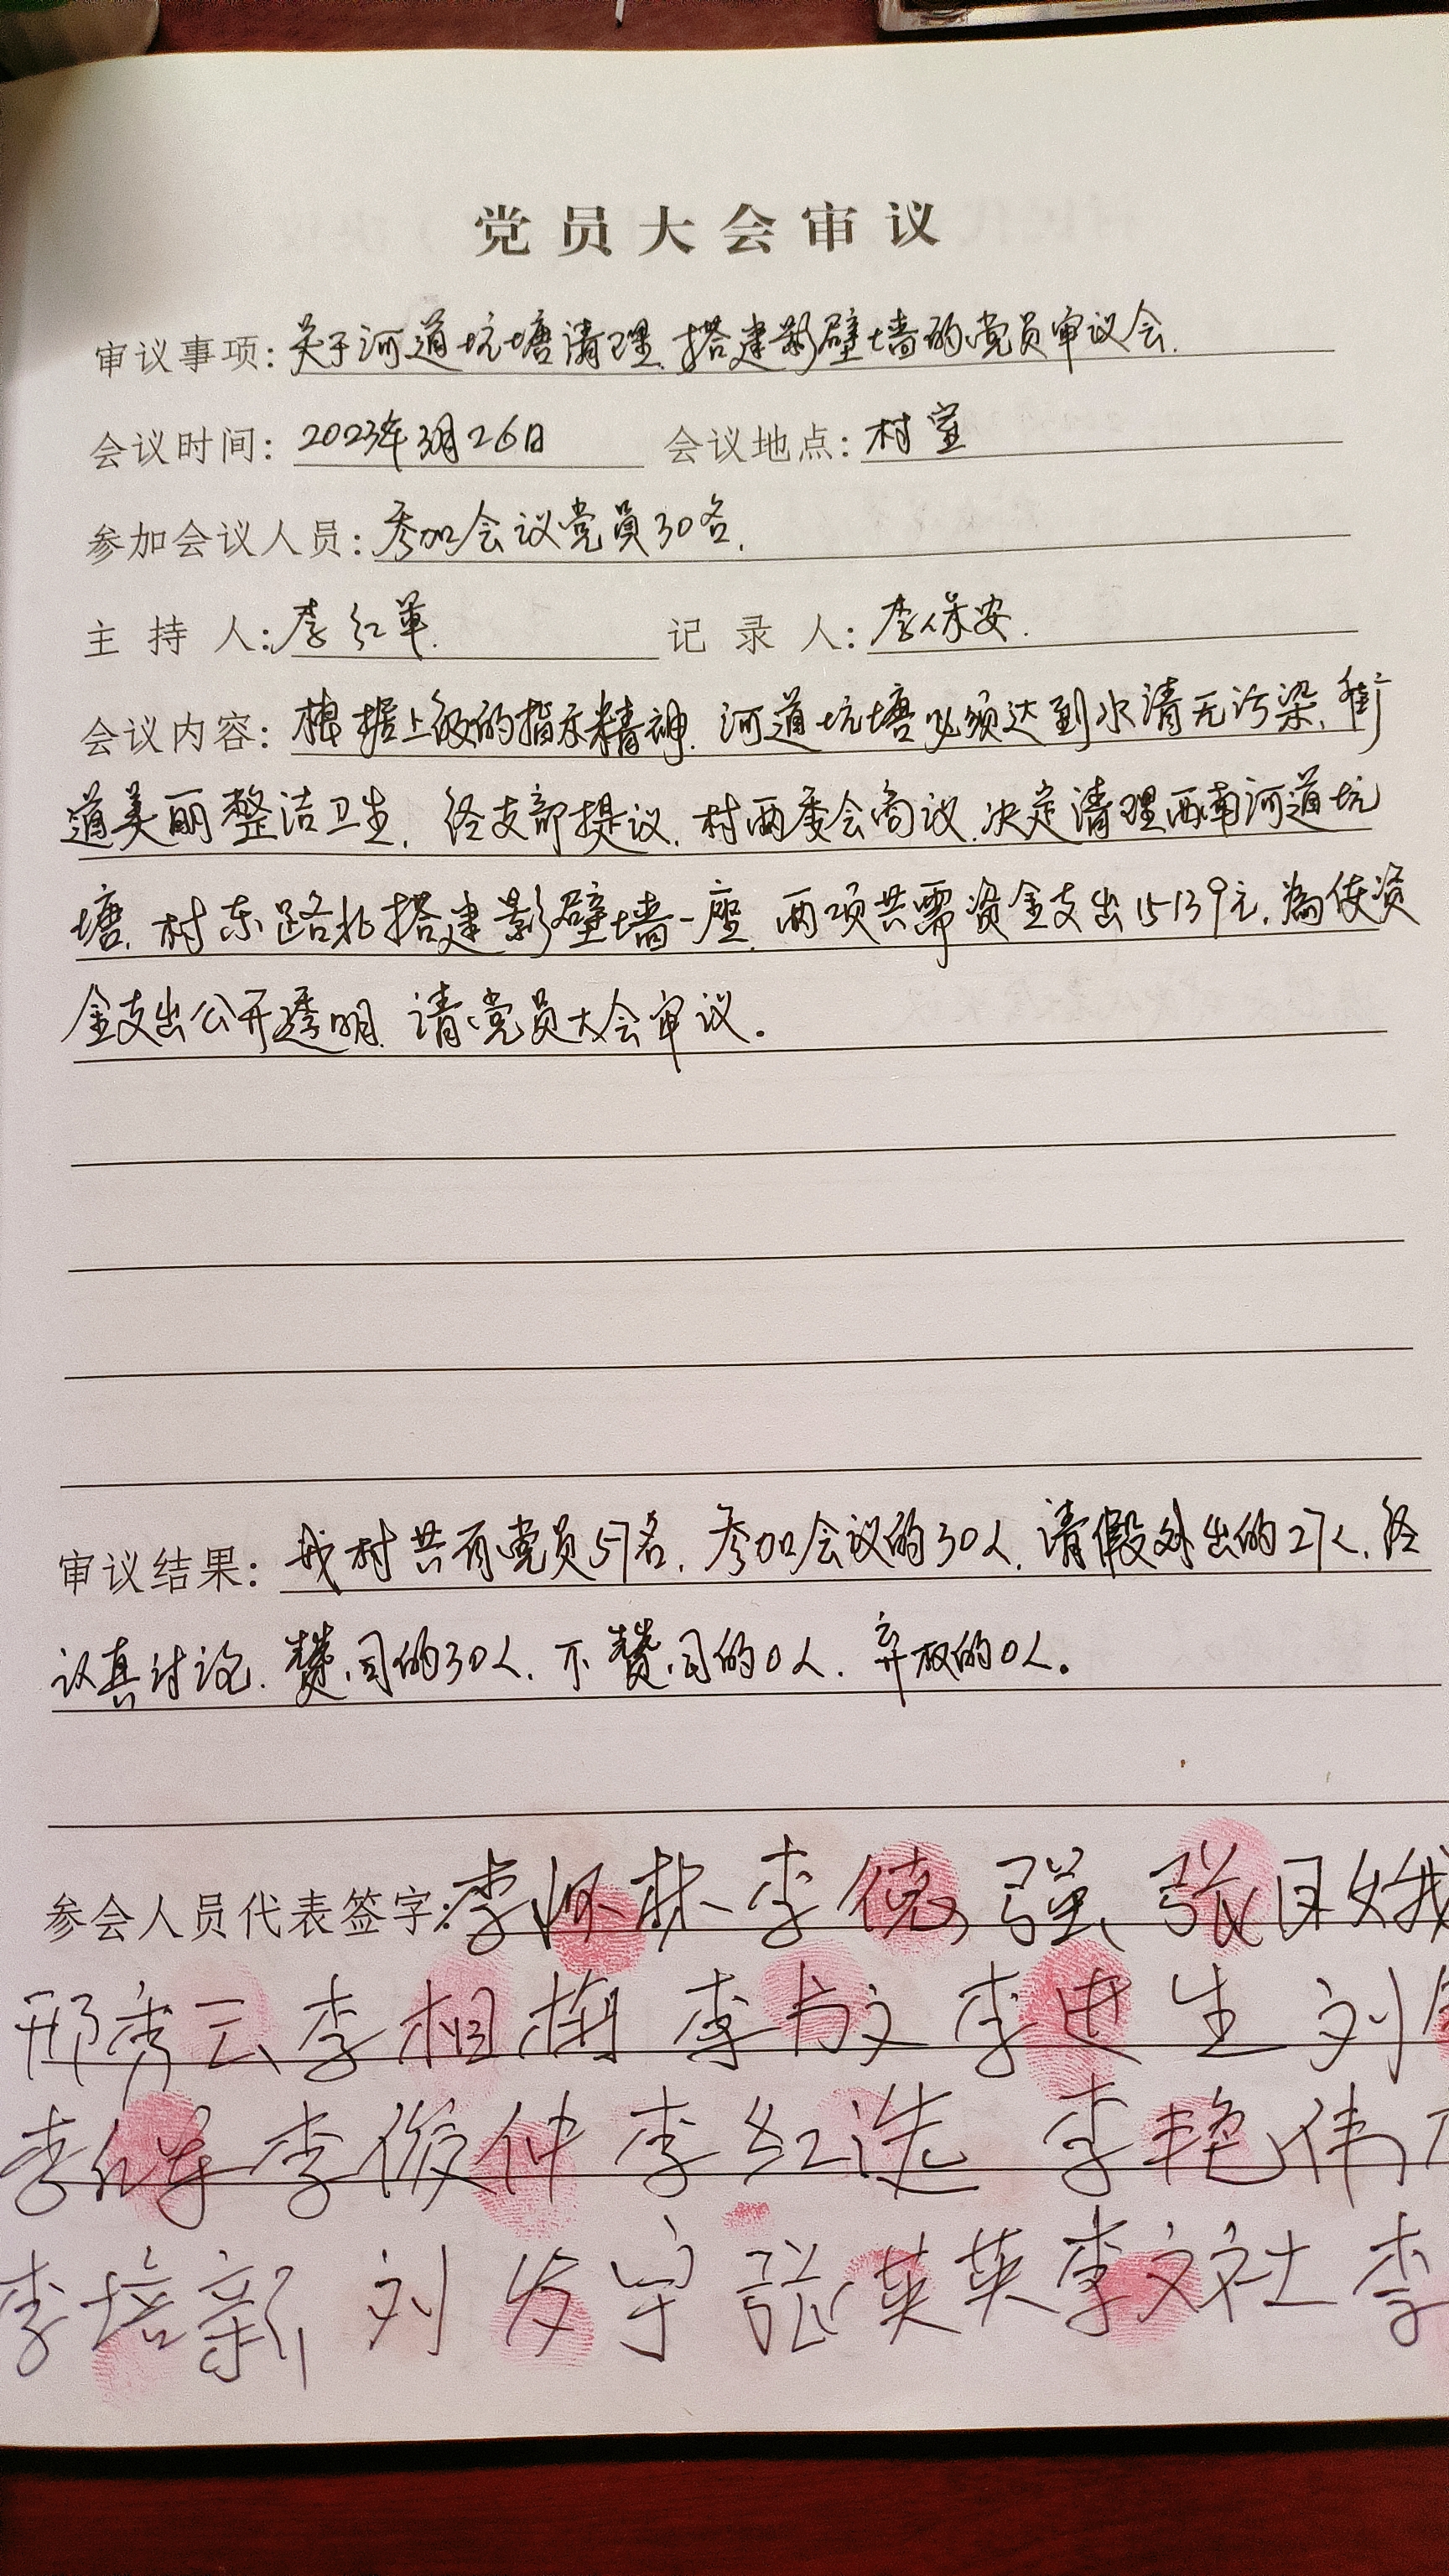 党员大会审议
审议事项:关于河道坑塘清理.搭建影壁墙的党员审议会.
会议时间:2023年3月26日 会议地点:村室
参加会议人员:参加会议党员30名.
主持人:李红军. 记录人:李保安.
会议内容:根据上级的指示精神.河道坑塘必须达到水清无污染.街
道美丽整洁卫生.经支部提议.村两委会商议.决定清理西南河道坑
塘.村东路北搭建影壁墙一座.两项共需资金支出15139元.為使资
金支出公开透明.请党员大会审议。
审议结果:我村共有党员57名.参加会议的30人.请假外出的27人.经
认真讨论.赞同的30人.不赞同的0人.弃权的0人。
参会人员代表签字:李怀林 李德强 张月娥
邢秀云 李相梅 李书文 李进生 刘
李俊仲 李红选 李艳伟
李培新 刘发宇 张英英 李文社 李